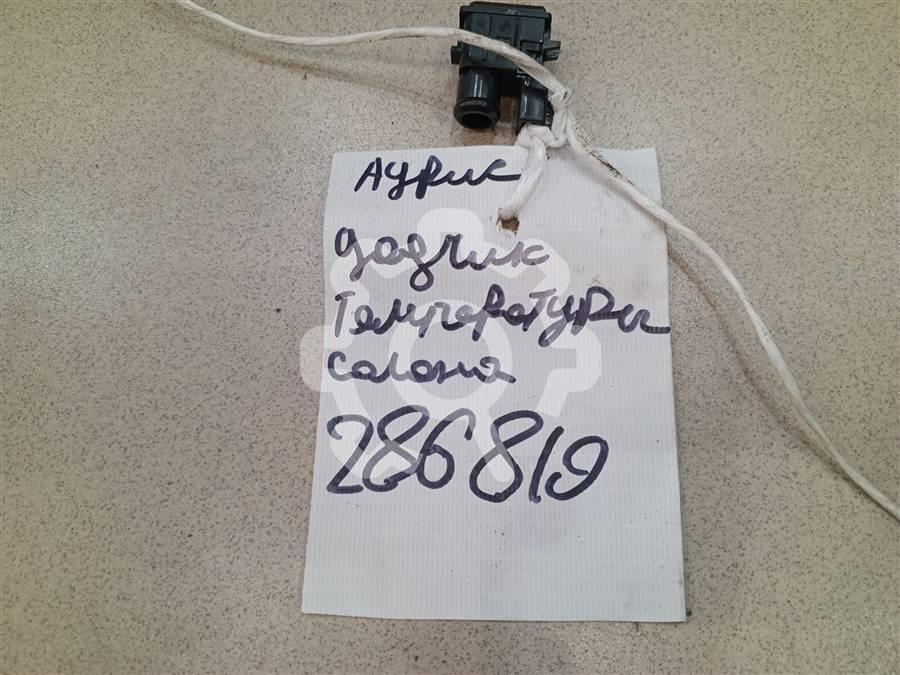 Аурис
дадчик
температуры
салона
286819